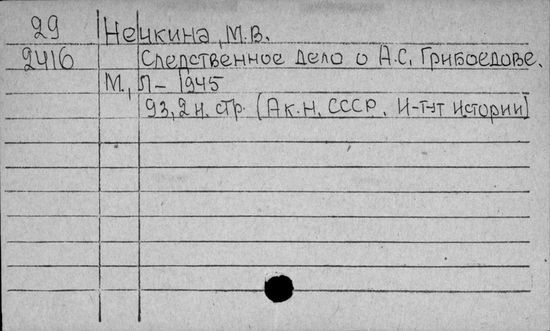 29 Нечкина, М.В.
2416 Следственное дело о А.С. Грибоедове.
М., Л – 1945
93, 2 н. стр. (Ак. Н. СССР. И-тут истории)